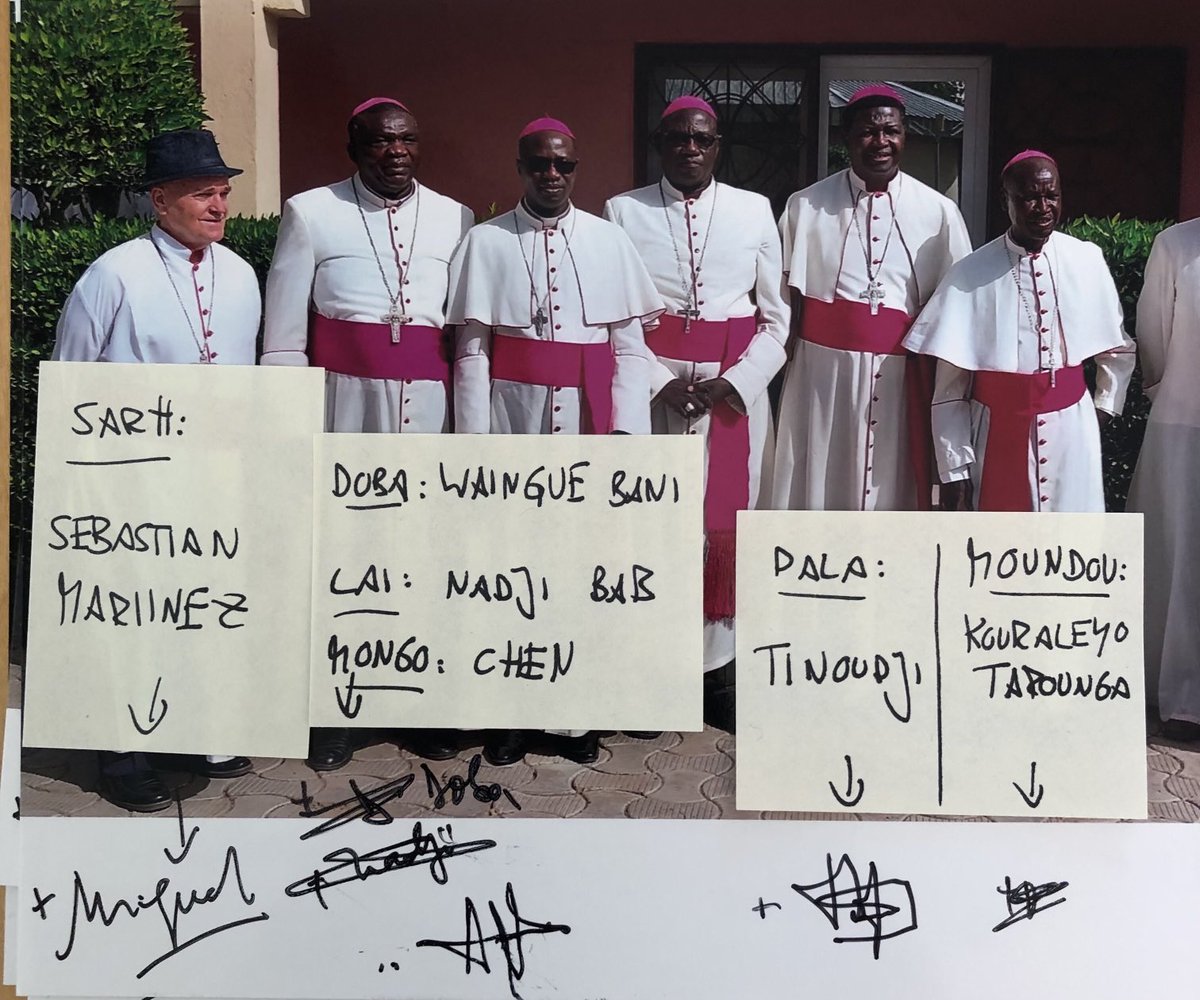 SARH:
SEBASTIAN
MARIINEZ
DOBA: WAINGUE BANI
LAI: NADJI BAB
MONGO: CHEN
PALA:
TINOUDJI
MOUNDOU:
KOURALEYO
TAROUNGA
+ Doba
Nadji
+ Miguel